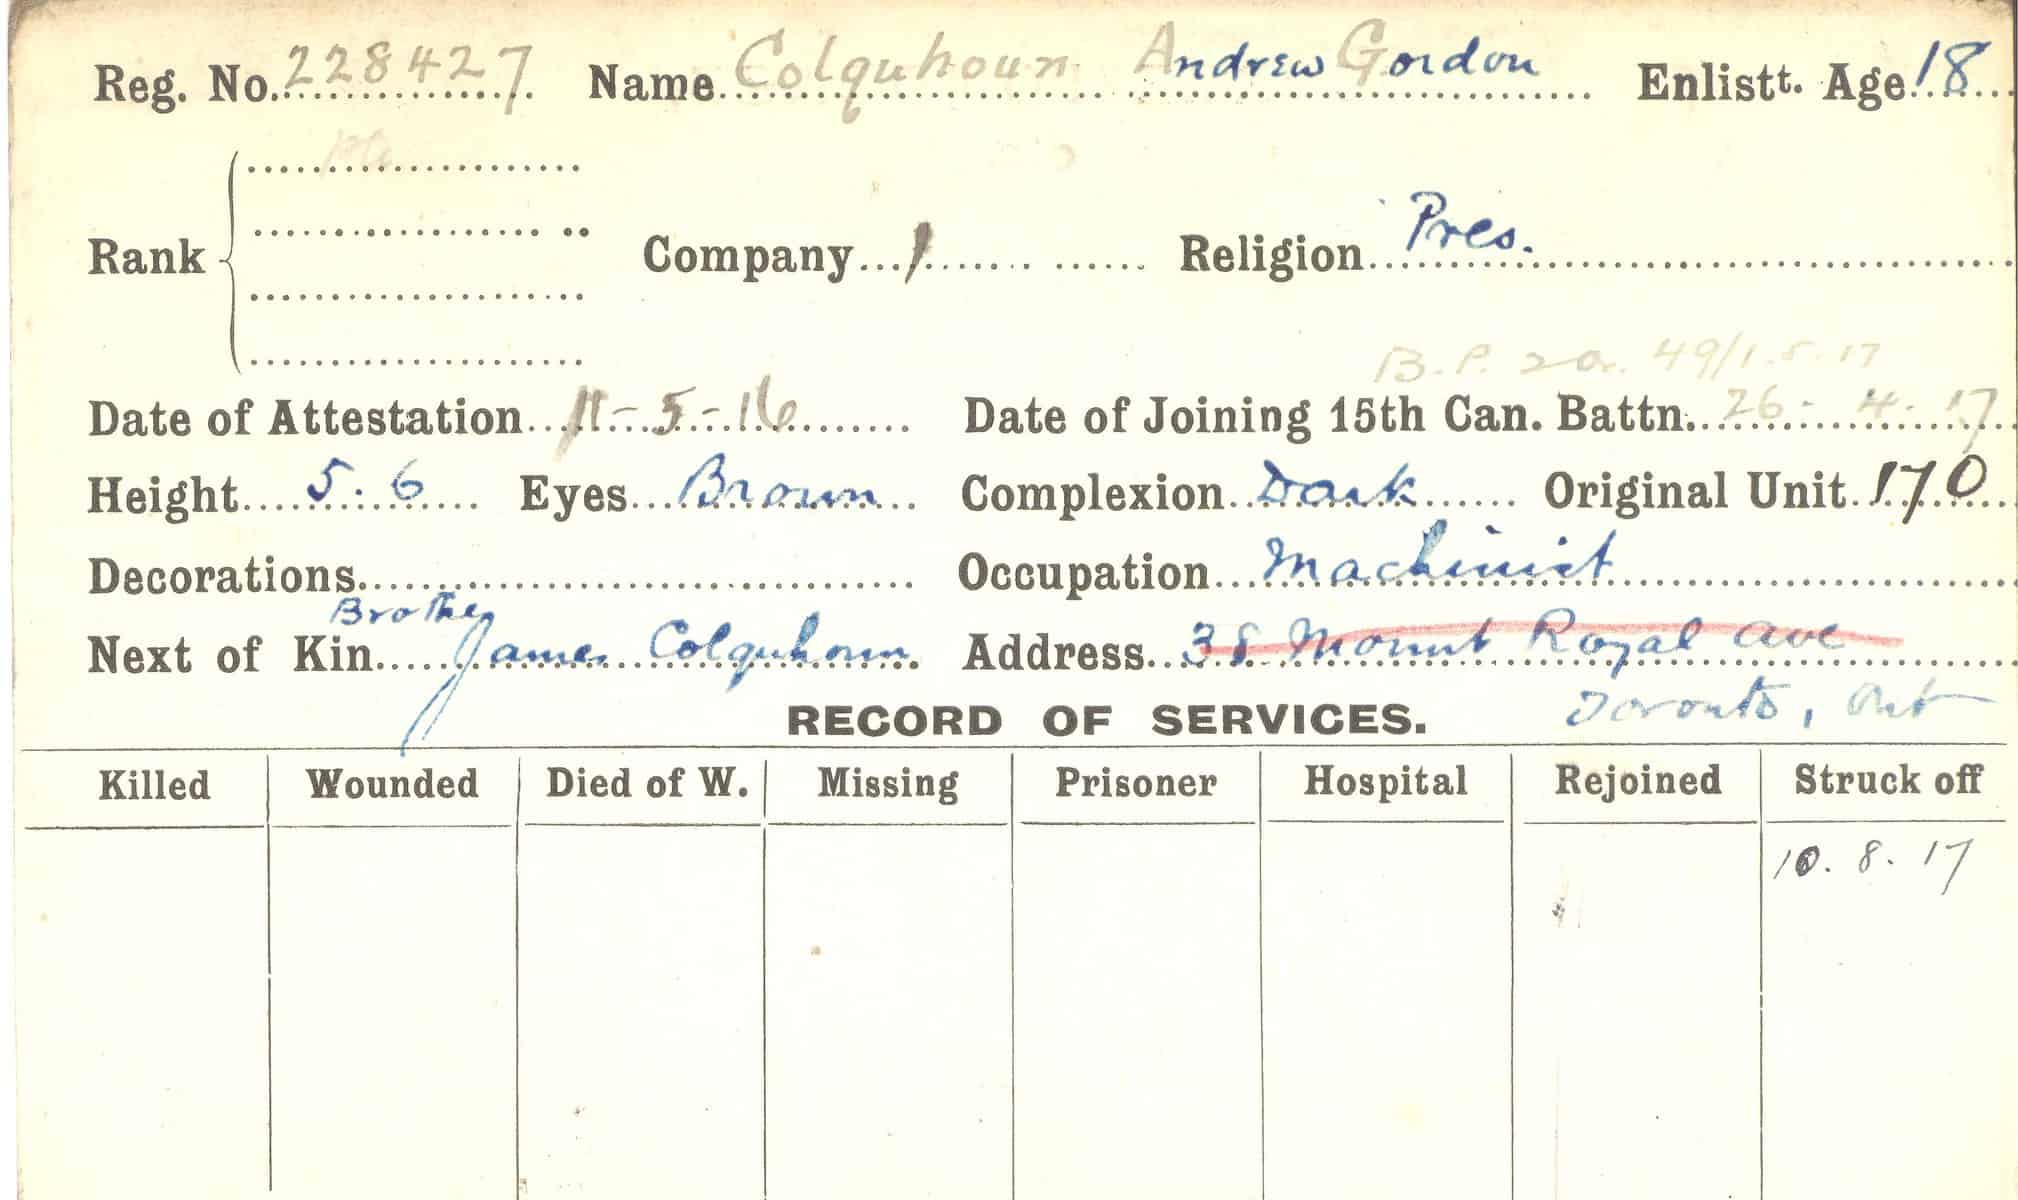 Reg. No. 228427 Name Colquhoun Andrew Gordon Enlistt. Age 18
Pte
Rank Company 1 Religion Pres.
B.P. 2 Or. 49/1.5.17
Date of Attestation 11-5-16 Date of Joining 15th Can. Battn. 26-4-17
Height 5.6 Eyes Brown Complexion Dark Original Unit 170
Decorations Occupation Machinist
Brother
Next of Kin James Colquhoun Address 38 Mount Royal Ave
RECORD OF SERVICES. Toronto, Ont
Killed Wounded Died of W. Missing Prisoner Hospital Rejoined Struck off
10.8.17